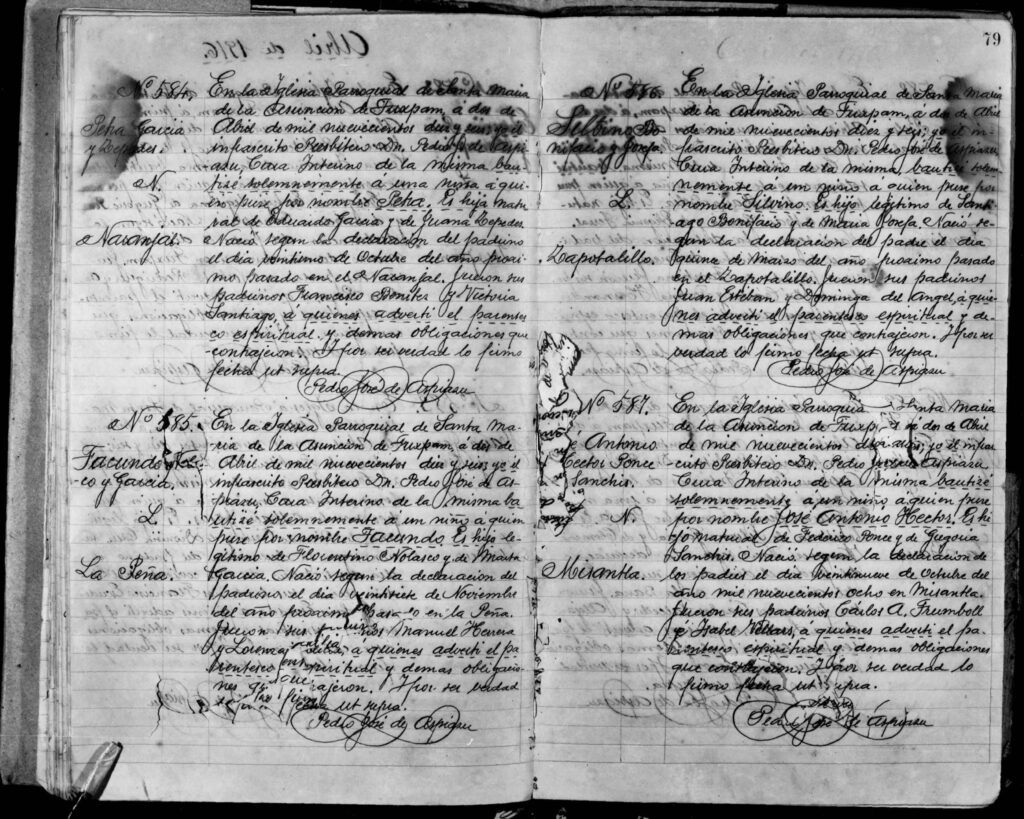 Abril de 1916.
79
No. 584.
Petra Garcia
y Zepedes.
N.
Naranjal.
En la Iglesia Parroquial de Santa Maria
de la Asuncion de Tuxpam, á dos de
Abril de mil nuevecientos diez y seis, yo el
infrascrito Presbitero Dn. Pedro J. de Aspia-
zu, Cura Interino de la misma bau-
ticé solemnemente á una niña á qui-
en puse por nombre Petra. Es hija natu-
ral de Eduardo Garcia y de Juana Zepedes.
Nació segun la declaracion del padrino
el dia veintiuno de Octubre del año pró-
ximo pasado en el Naranjal. Fueron sus
padrinos Francisco Benitez y Victoria
Santiago, á quienes advertí el parentes-
co espiritual y demas obligaciones que
contrajeron. Y por ser verdad lo firmo
fecha ut supra.
Pedro José de Aspiazu
No 585.
Facundo
co y Garcia.
L.
La Peña.
En la Iglesia Parroquial de Santa Ma-
ria de la Asuncion de Tuxpam, á dos de
Abril de mil nuevecientos diez y seis, yo el
infrascrito Presbitero Dn. Pedro José de As-
piazu, Cura Interino de la misma ba-
uticé solemnemente á un niño á quien
puse por nombre Facundo. Es hijo le-
gitimo de Florentino Nolasco y de Marta
Garcia. Nació segun la declaracion del
padrino el dia veintisiete de Noviembre
del año proximo pasado en la Peña.
Fueron sus Manuel Herrera
y Lorenza á quienes advertí el pa-
rentesco espiritual y demas obligacio-
nes que contrajeron. Y por ser verdad
fecha ut supra.
Pedro José de Aspiazu
No. 586.
Silbino Bo-
nifacio y Josefa.
L.
Zapotalillo.
En la Iglesia Parroquial de Santa Maria
de la Asuncion de Tuxpam, á dos de Abril
de mil nuevecientos diez y seis, yo el in-
frascrito Presbitero Dn. Pedro José de Aspiazu
Cura Interino de la misma, bauticé solem-
nemente á un niño á quien puse por
nombre Silvino. Es hijo legítimo de Santi-
ago Bonifacio y de Maria Josefa. Nació se-
gun la declaracion del padre el dia
quince de Marzo del año proximo pasado
en el Zapotalillo. Fueron sus padrinos
Juan Esteban y Dominga del Angel, á quie-
nes advertí el parentesco espiritual y de-
mas obligaciones que contrajeron. Y por ser
verdad lo firmo fecha ut supra.
Pedro José de Aspiazu
No 587.
é Antonio
Hector Ponce
Sanchis.
N.
Misantla.
En la Iglesia Parroquial Santa Maria
de la Asuncion de Tuxp. á dos de Abril
de mil nuevecientos diez y seis, yo el infras-
crito Presbitero Dn. Pedro José de Aspiazu
Cura Interino de la misma bauticé
solemnemente á un niño á quien puse
por nombre José Antonio Hector. Es hi-
jo natural de Federico Ponce y de Gregoria
Sanchis. Nació segun la declaracion de
los padres el dia veintinueve de Octubre del
año mil nuevecientos ocho en Misantla.
Fueron sus padrinos Cárlos A. Trumboll
é Isabel á quienes advertí el pa-
rentesco espiritual y demas obligaciones
que contrajeron. Y por ser verdad lo
firmo fecha ut supra.
Pedro José de Aspiazu